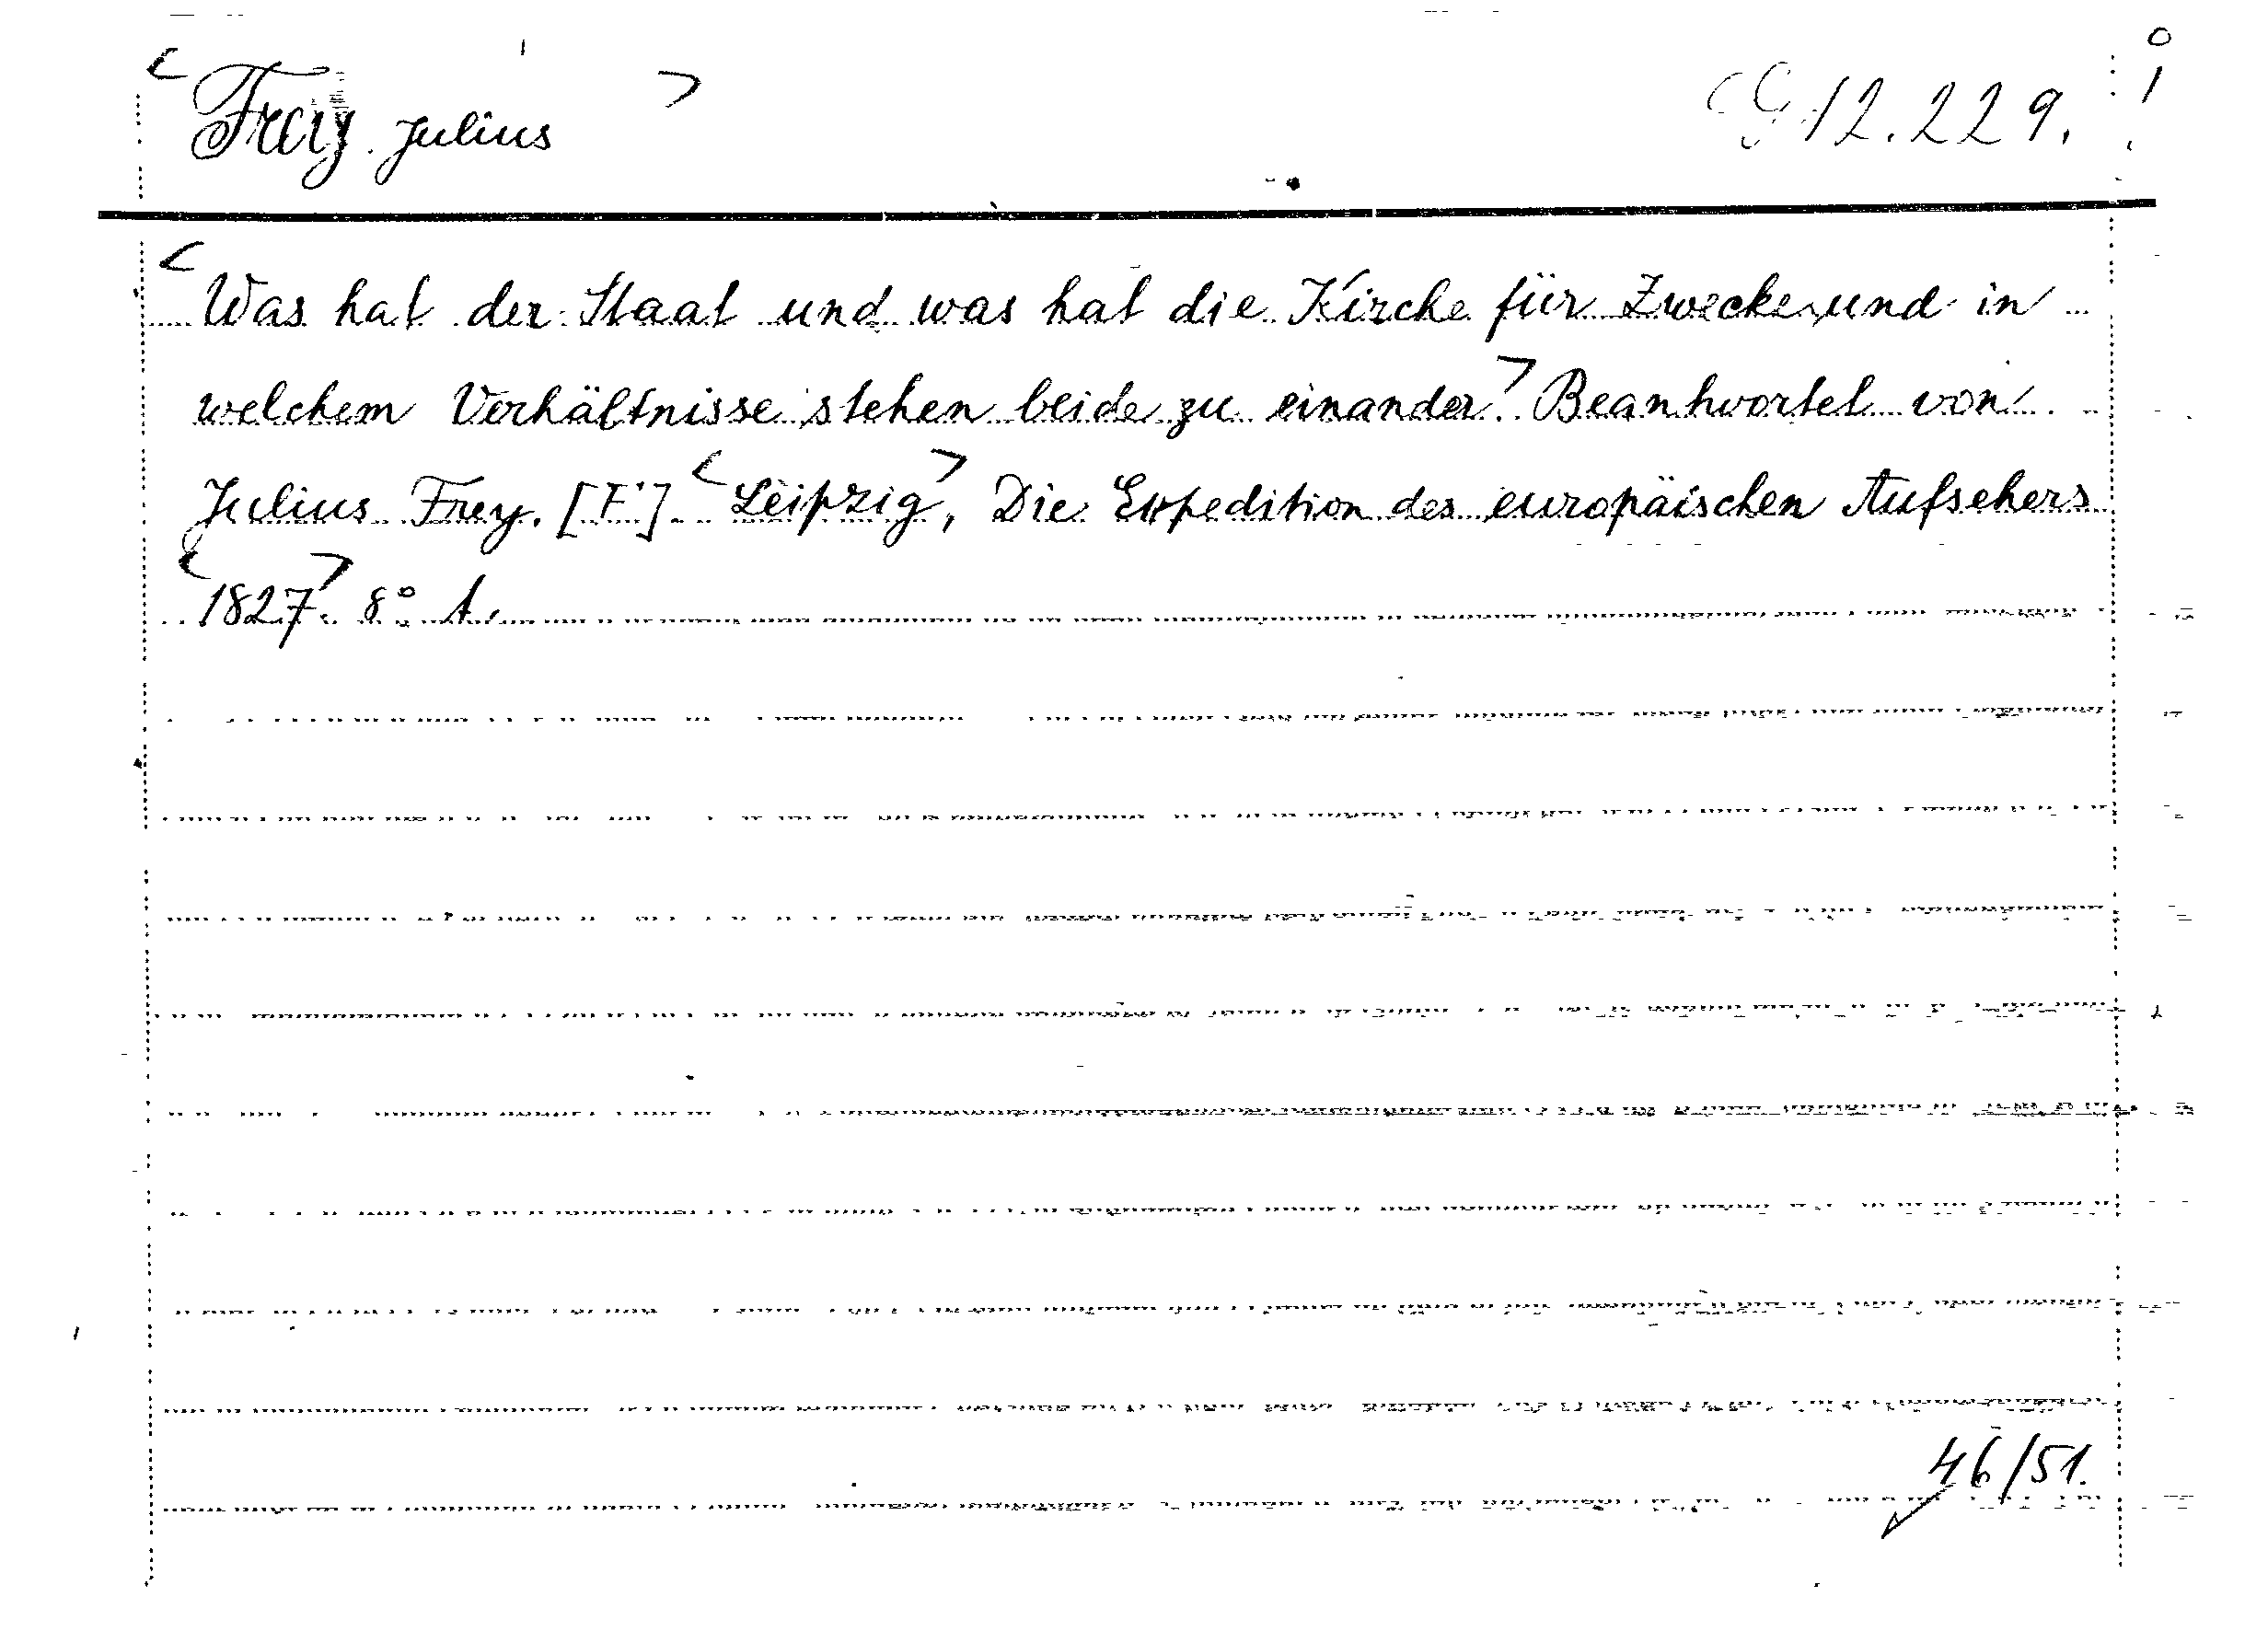 <Frey. Julius>
G 12.229.
<Was hat der Staat und was hat die Kirche für Zwecke, und in
welchem Verhältnisse stehen beide zu einander>. Beantwortet von
Julius Frey. [F.] <Leipzig>, Die Expedition des europäischen Aufsehers
<1827>. 8° 1.
46/51.